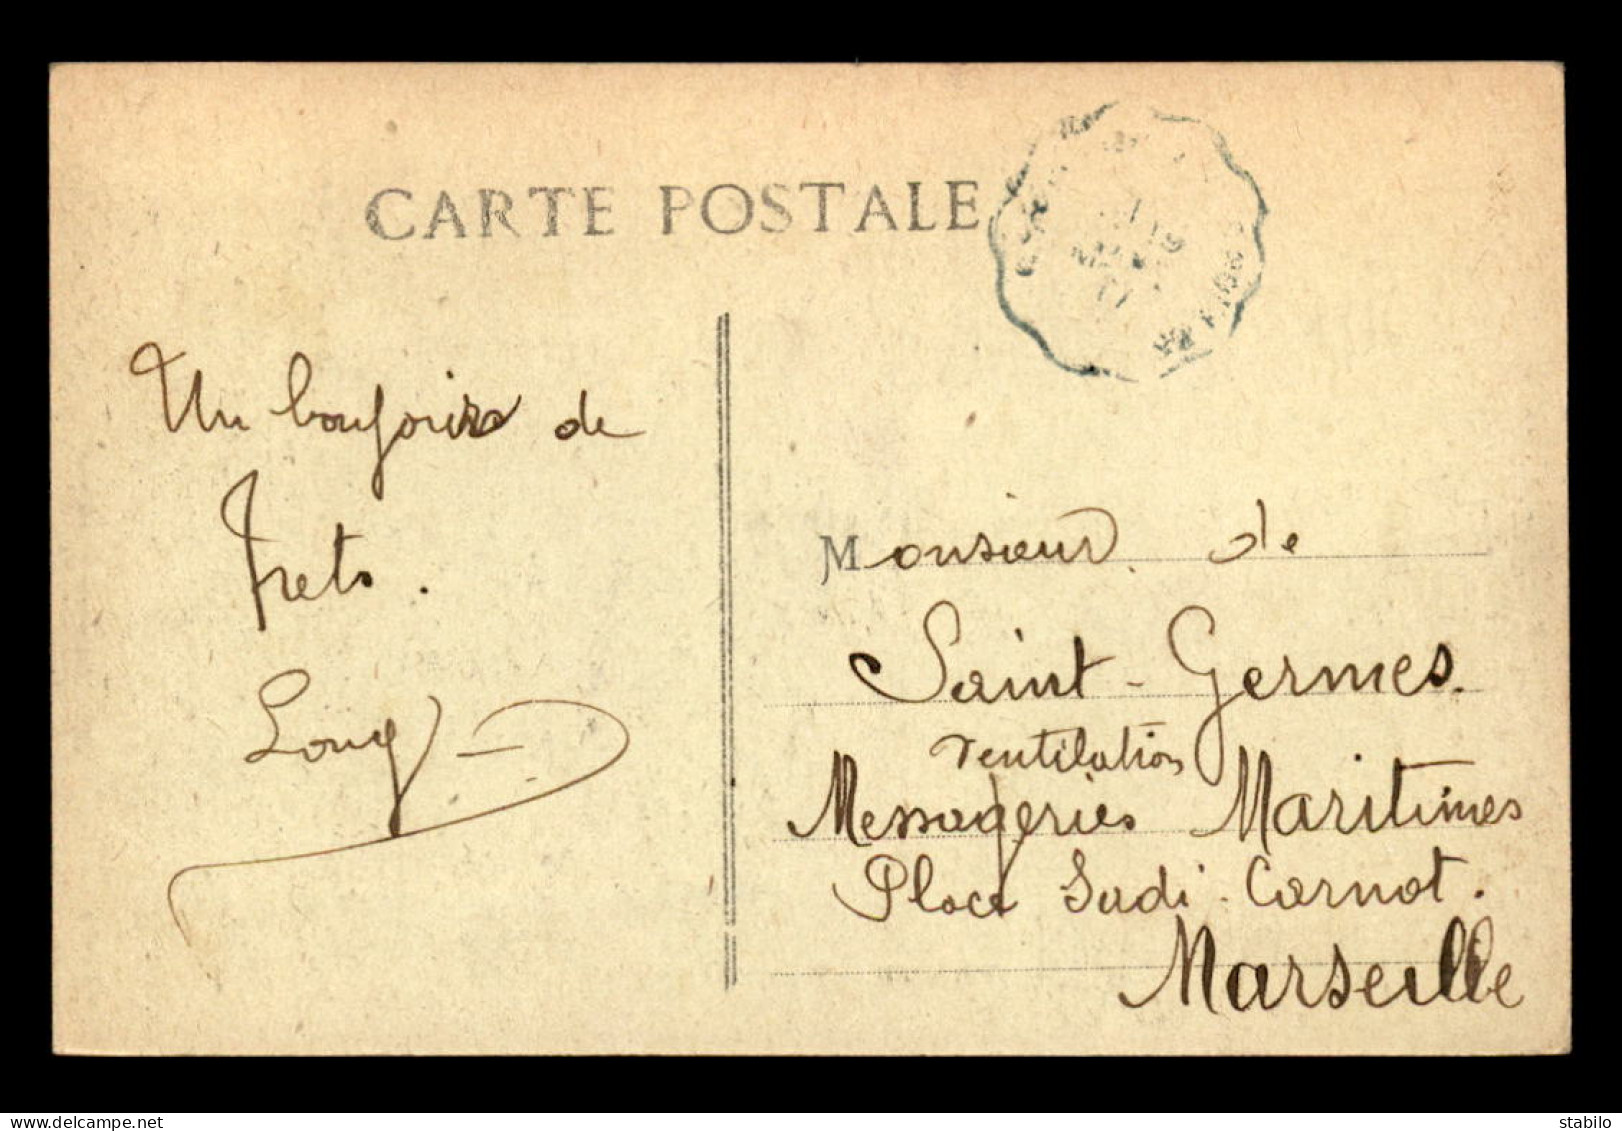 CARTE POSTALE
Un bonjour de
Trets.
Louy
Monsieur de
Saint-Germes.
Ventilation
Messageries Maritimes
Place Sadi-Carnot.
Marseille
delcampe.net
stabilo